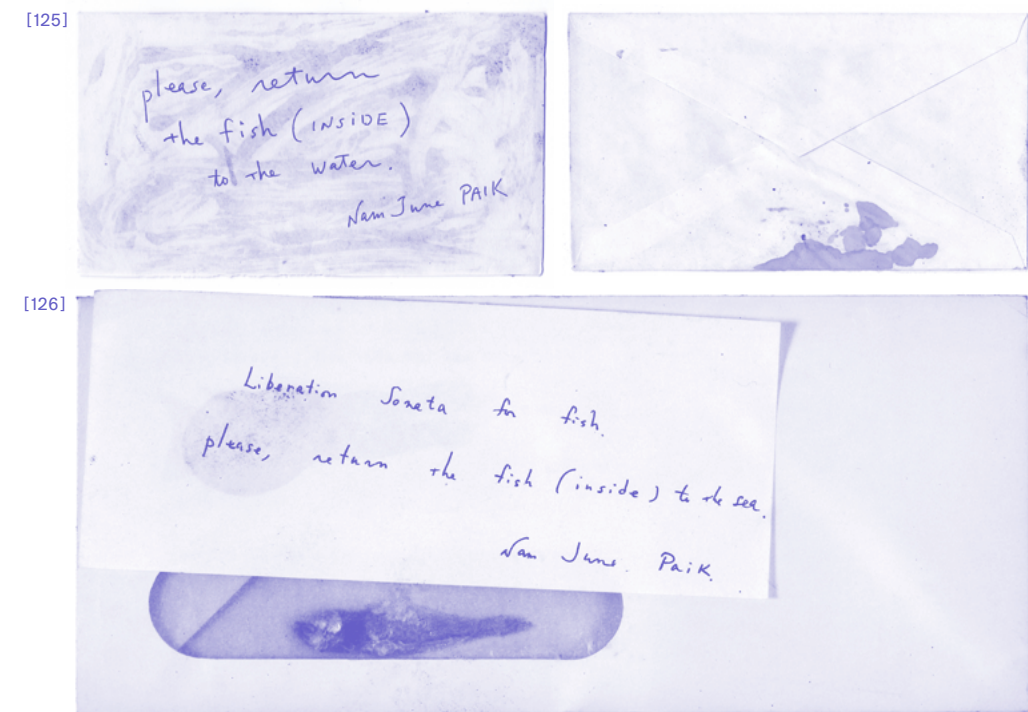 [125]
please, return
the fish (INSiDE)
to the water.
Nam June PAIK
[126]
Liberation Sonata for fish.
please, return the fish (inside) to the sea.
Nam June. PaiK.